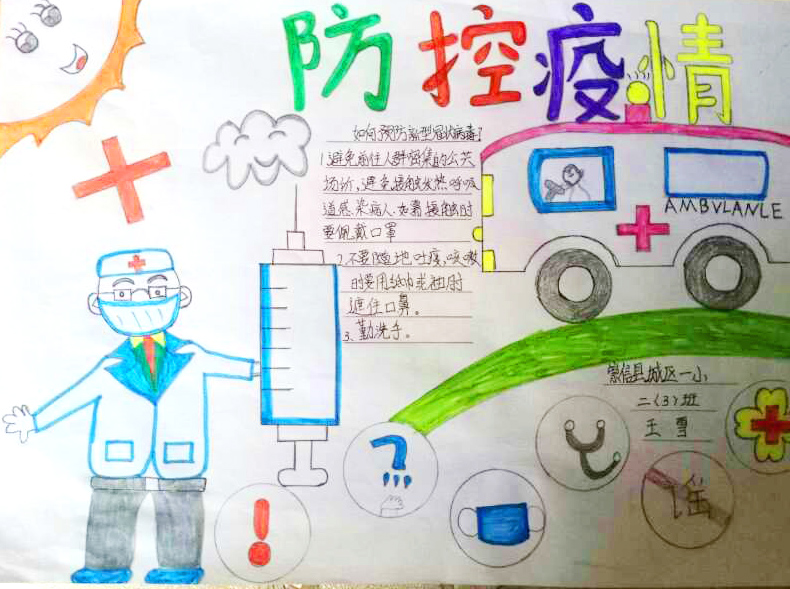 防控疫情
如何预防新型冠状病毒?
1.避免前往人群密集的公共
场所,避免接触发热呼吸
道感染病人.如需接触时
要佩戴口罩
2.不要随地吐痰,咳嗽
时要用纸巾或袖肘
遮住口鼻。
3、勤洗手。
AMBVLANLE
崇信县城区一小
二(3)班
王雪
谣